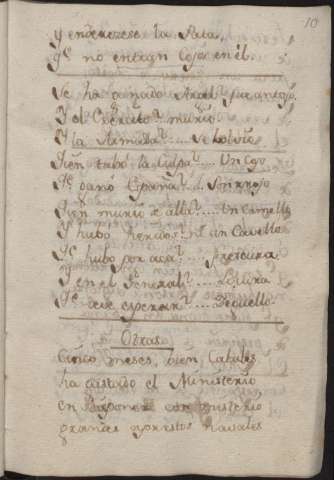 10
y enderezese la Pata,
qe. no entran Cojos en él.
Se ha ganado Argel? fue antojo.
Y el Exército? murió
Y la Armada?.... se bolvió
Quien tubo la Culpa?.... Un Cojo
Qe. ganó España?.. Sonrrojo
Quien murió de allá?.... Un Camello
Y hubo heridos? ni un Cavello
Qe. hubo por acá?.. frescura
Y en el General?... Locura
Qe. deve esperar?.... Deguello
Otras
Cinco meses, bien Cabales
ha gastado el Ministerio
en disponer con misterio
grandes aprestos Navales